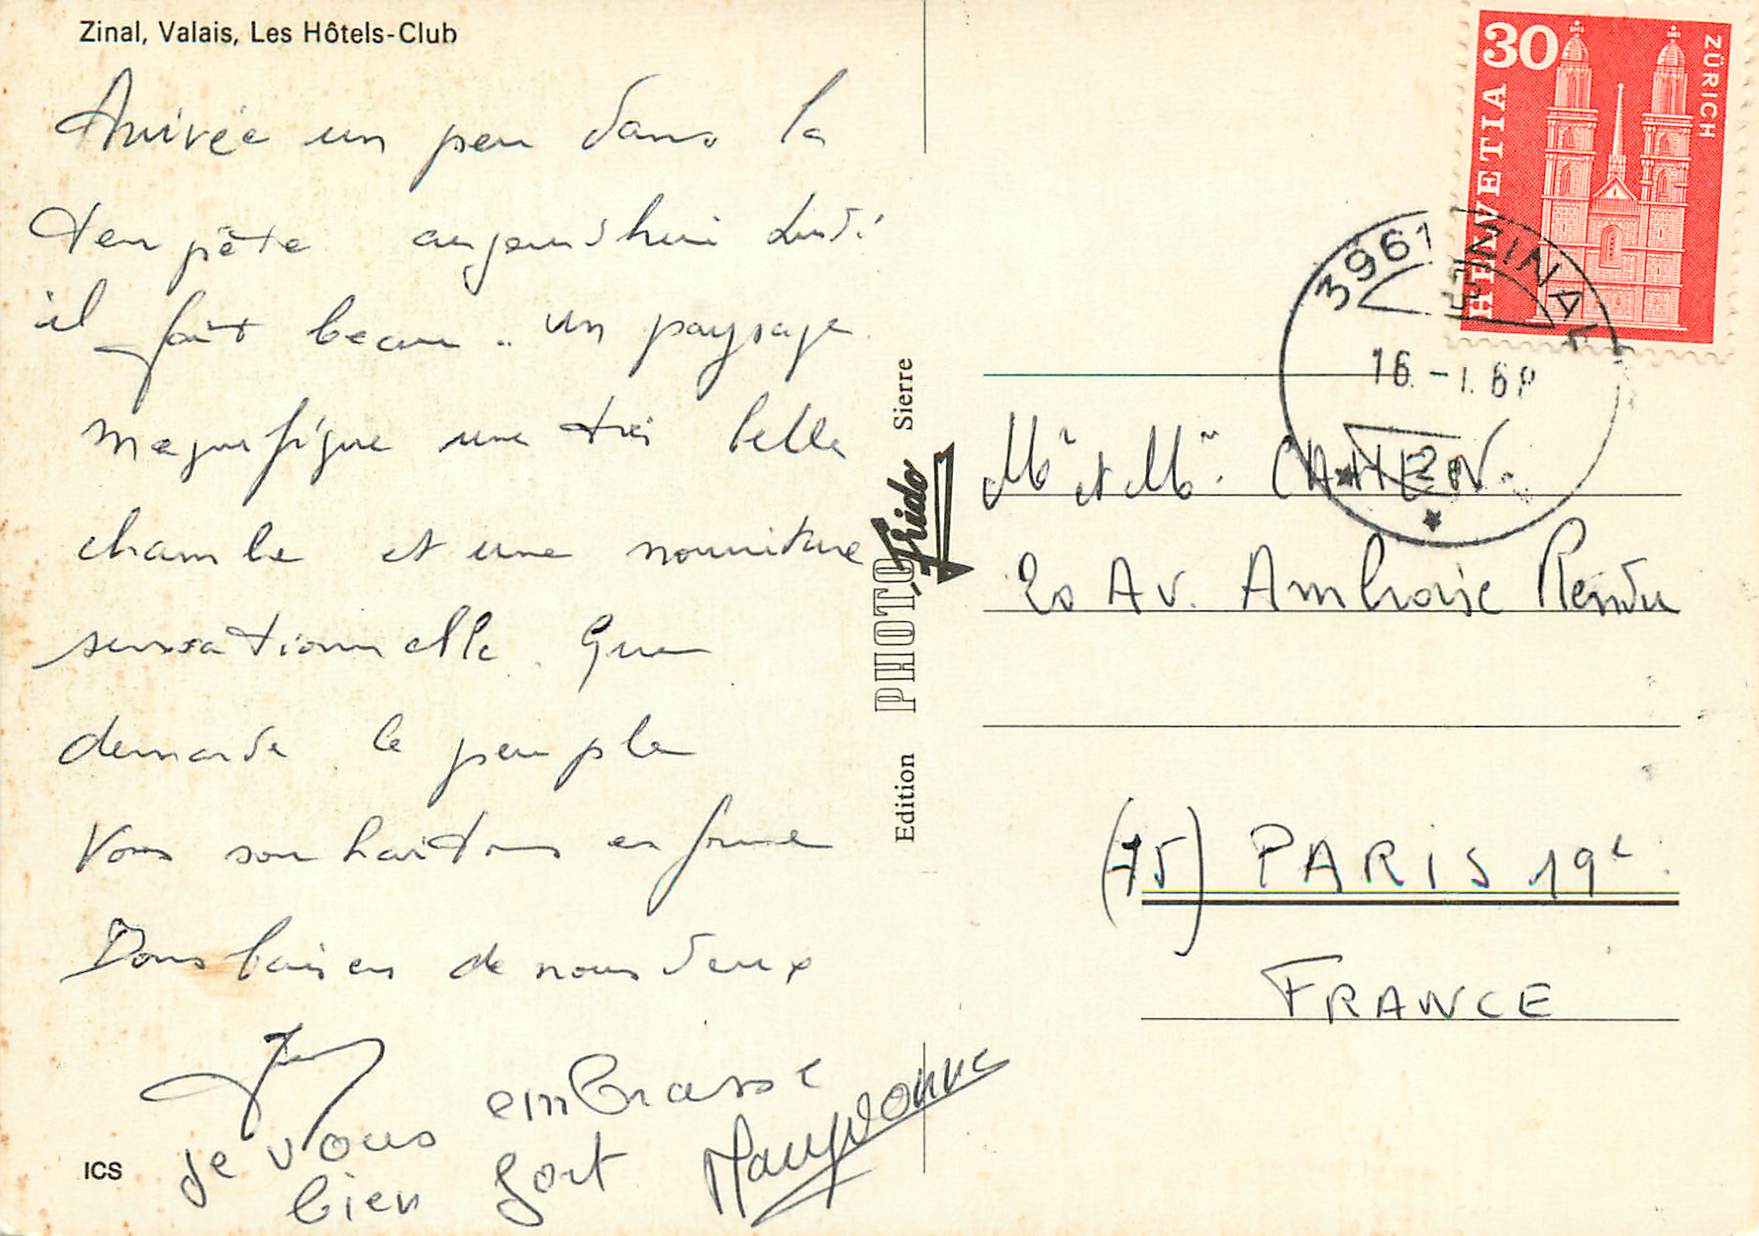 Zinal, Valais, Les Hôtels-Club
Arrivée un peu dans la
tempête aujourd'hui Lundi
il fait beau.. un paysage
magnifique une très belle
chambre et une nourriture
sensationnelle. Que
demande le peuple
Vous souhaitons en forme
Bons baisers de nous deux
je vous embrasse
bien fort
ICS
Edition PHOTO Frido Sierre
HELVETIA
30
ZÜRICH
3961 ZINAL
16.-1.68
2
Mr et Mme. CAHEN.
20 Av. Ambroise Rendu
(75) PARIS 19e.
FRANCE